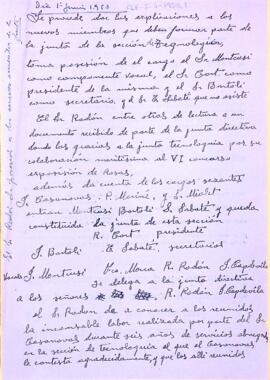 Dia 1º Junio 1950
Se procede dar las explicaciones a los
nuevos miembros que deben formar parte de
la junta de la sección de Tegnologión,
toma possesión de el cargo el Sr Montusi
como componente vocal, el Sr Cort como
presidente de la misma y el Sr Bartoli
como secretario, y de Sr Sabaté que no asiste
El Sr Rodón entre otras de lectura a un
documento recibido de parte de la junta directiva
dando las gracias a la junta tegnologia por su
colaboración maritisima al VI concurso
exposición de Rosas,
además da cuenta de los cargos sexantes
J. Casanovas, P. Meriné, y S. Mialet
entran Montusi Bartoli S. Sabaté y queda
constituida la junta de esta sección
R. Cort presidente
J. Bartoli S. Sabaté, secretarios
Vocales J. Montusi Vro. Maria R. Rodón J. Capdevila
se delega a la junta directiva
a los señores R. Rodón J. Capdevila
el Sr Rodon da a conocer a los reunidos
la incansable labor realizada por parte del Sr
Casanovas durante seis años de servicios abnegados
en la sección de tecnologia al que el Casanovas
le contesta agradecidamente, y que los alli reunidos
El Sr Rodón da posesión a los nuevos miembros de la
Junta